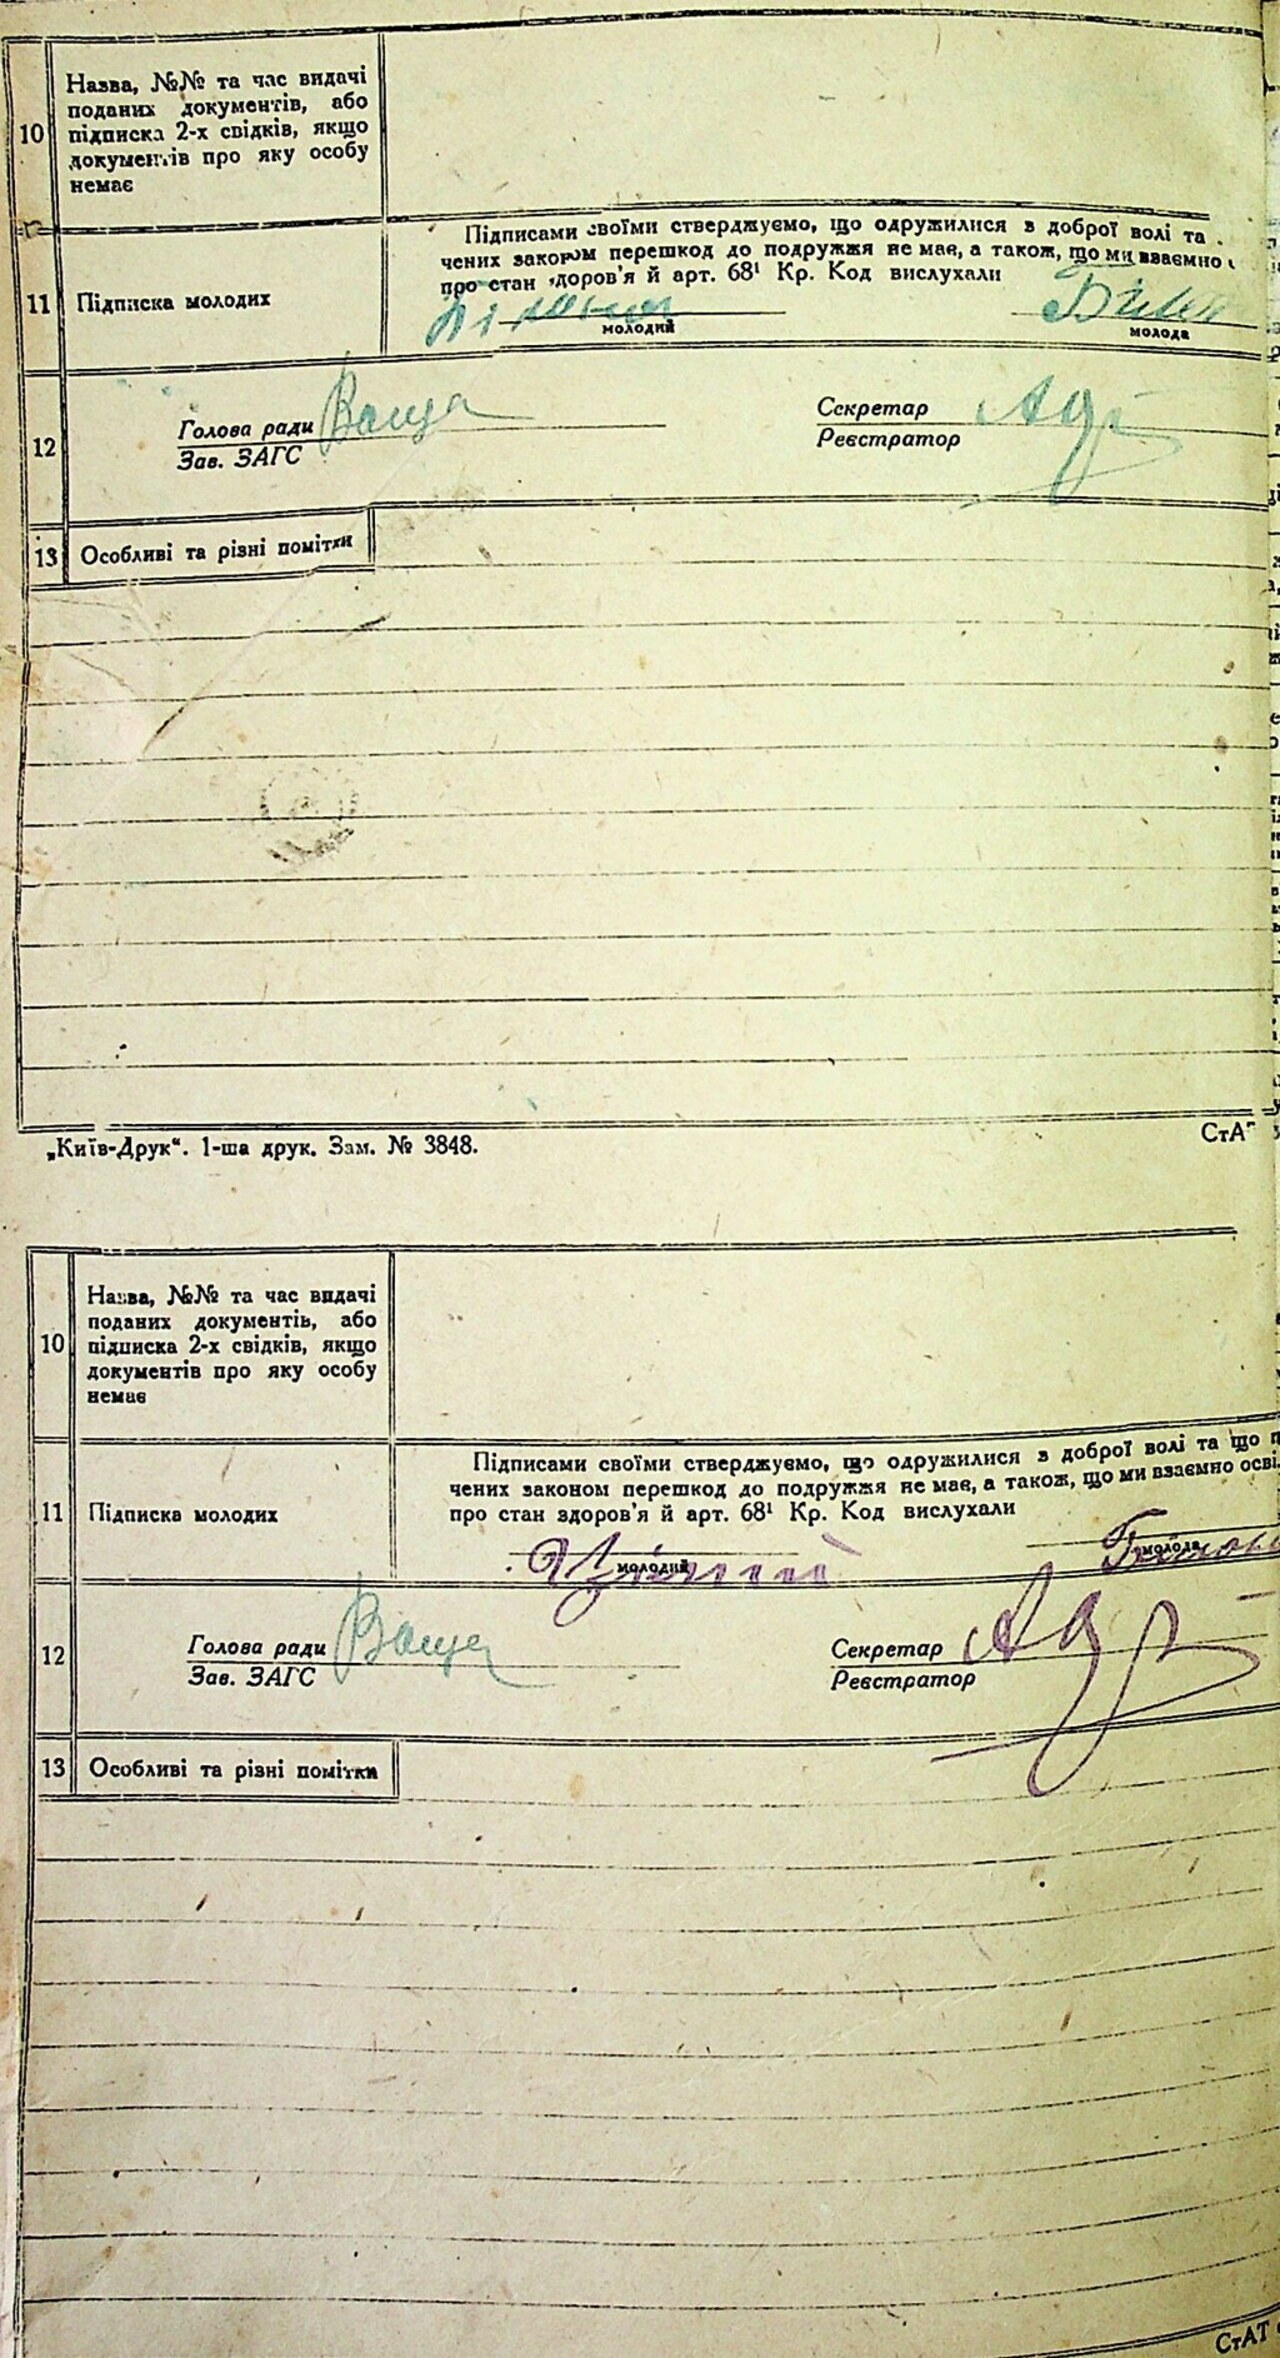 10
Назва, №№ та час видачі
поданих документів, або
підписка 2-х свідків, якщо
документів про яку особу
немає
11
Підписка молодих
Підписами своїми стверджуємо, що одружилися з доброї волі та
чених законом перешкод до подружжя не має, а також, що ми взаємно
про стан здоров'я й арт. 68¹ Кр. Код вислухали
молодий
молода
12
Голова ради Ваща
Зав. ЗАГС
Секретар
Реєстратор
13
Особливі та різні помітки
„Київ-Друк“. 1-ша друк. Зам. № 3848.
СтАТ
10
Назва, №№ та час видачі
поданих документів, або
підписка 2-х свідків, якщо
документів про яку особу
немає
11
Підписка молодих
Підписами своїми стверджуємо, що одружилися з доброї волі та що п
чених законом перешкод до подружжя не має, а також, що ми взаємно осві
про стан здоров'я й арт. 68¹ Кр. Код вислухали
молодий
молода
12
Голова ради Ваща
Зав. ЗАГС
Секретар
Реєстратор
13
Особливі та різні помітки
СтАТ